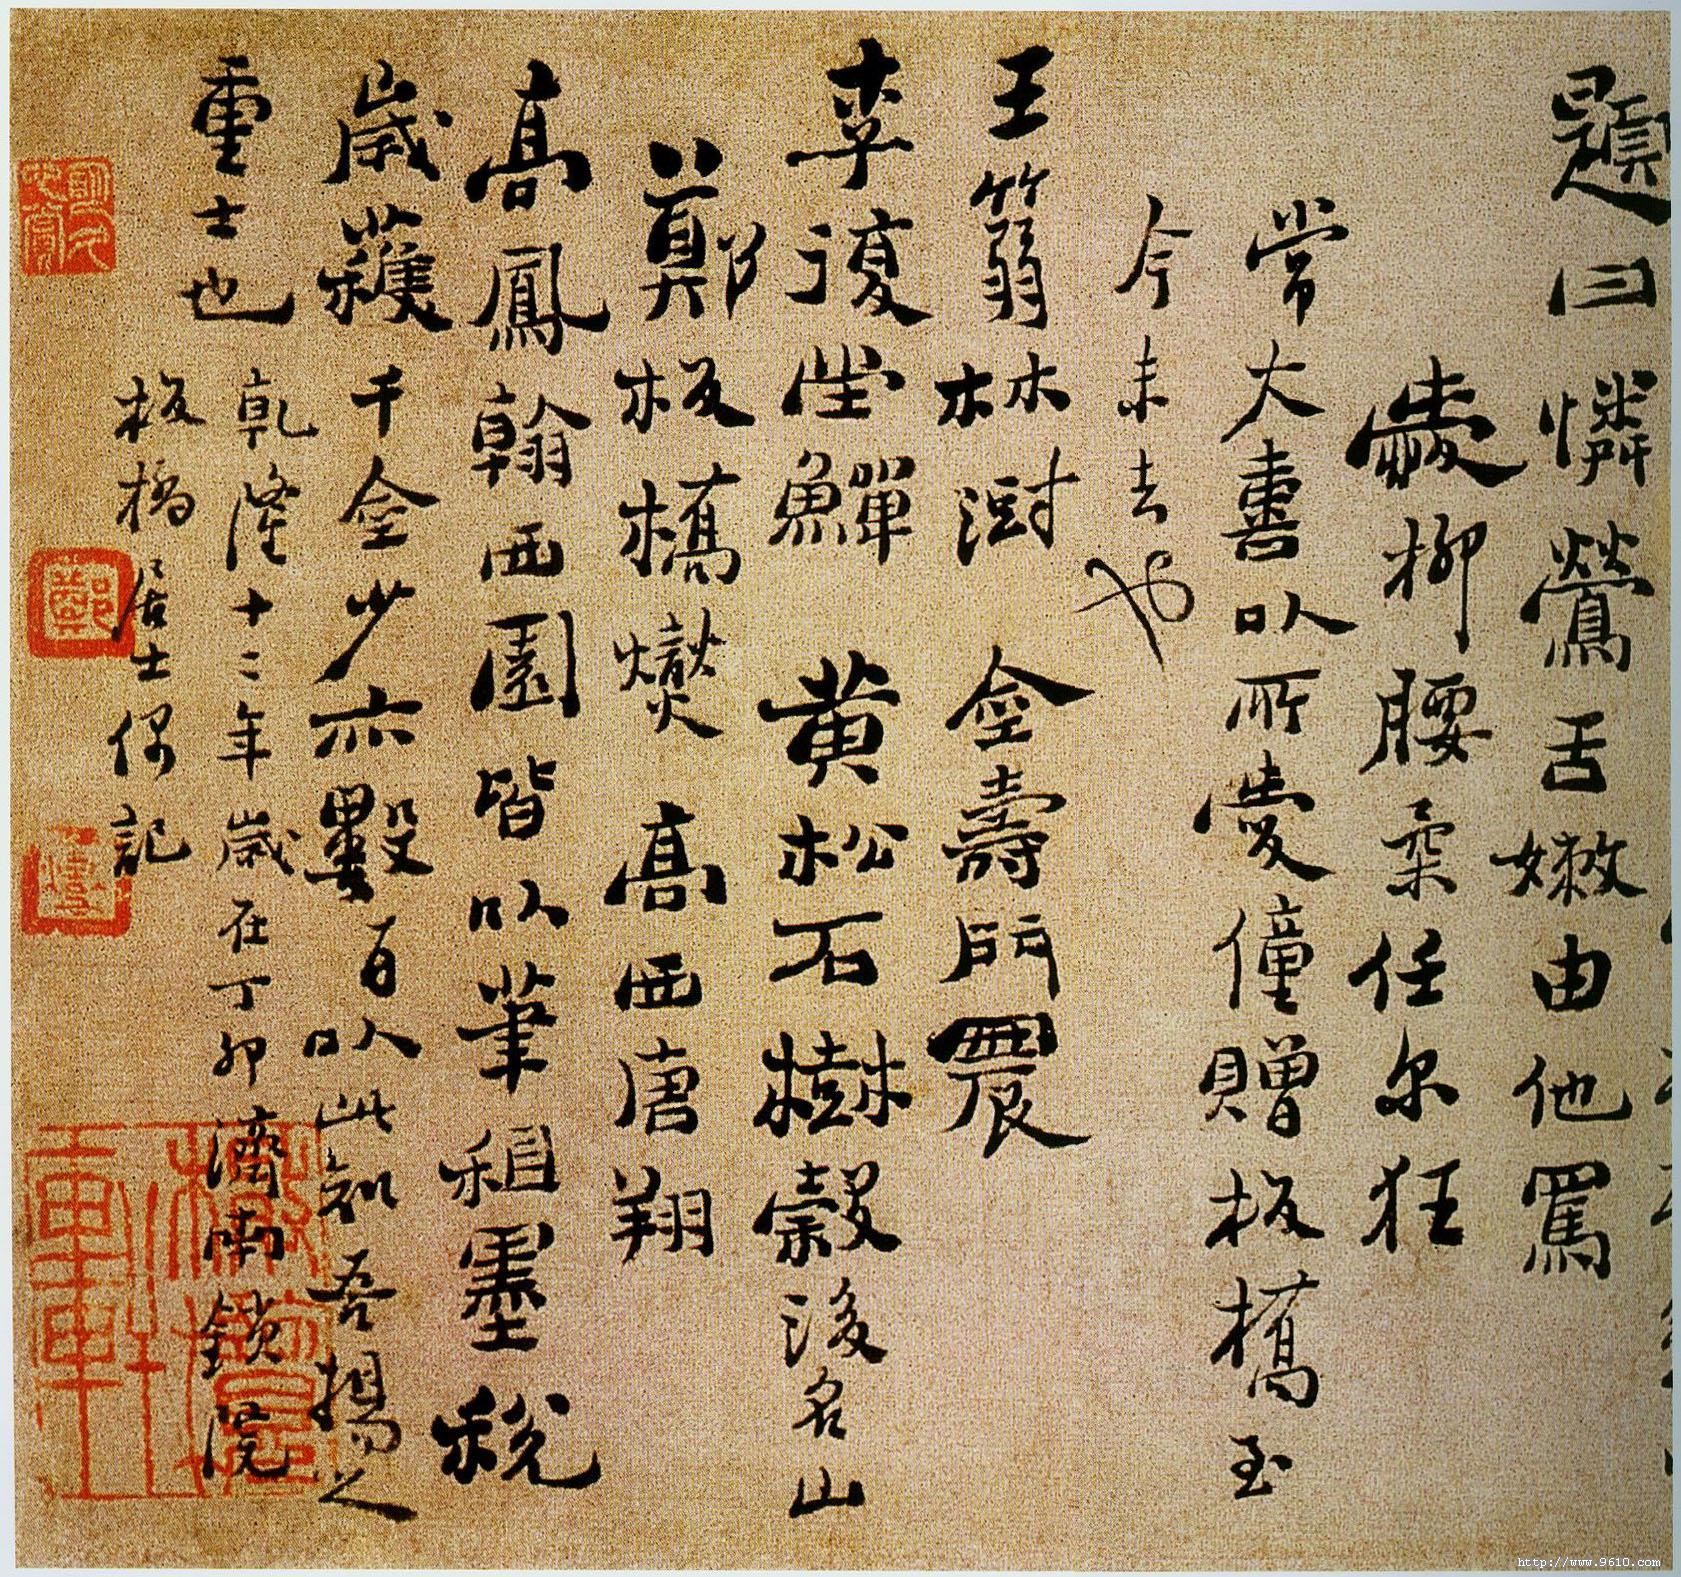 題曰憐鶯舌嫩由他罵
愛柳腰柔任尔狂
常大喜以所愛僮贈板橋至
今未去也
王篛林澍 金壽門農
李復堂鱓 黃松石樹穀後名山
鄭板橋燮 高西唐翔
高鳳翰西園皆以筆租墨稅
歲獲千金少亦數百以此知吾揚之
重士也 乾隆十二年歲在丁卯濟南鎖院
板橋居士偶記
鄭
http://www.9610.com/